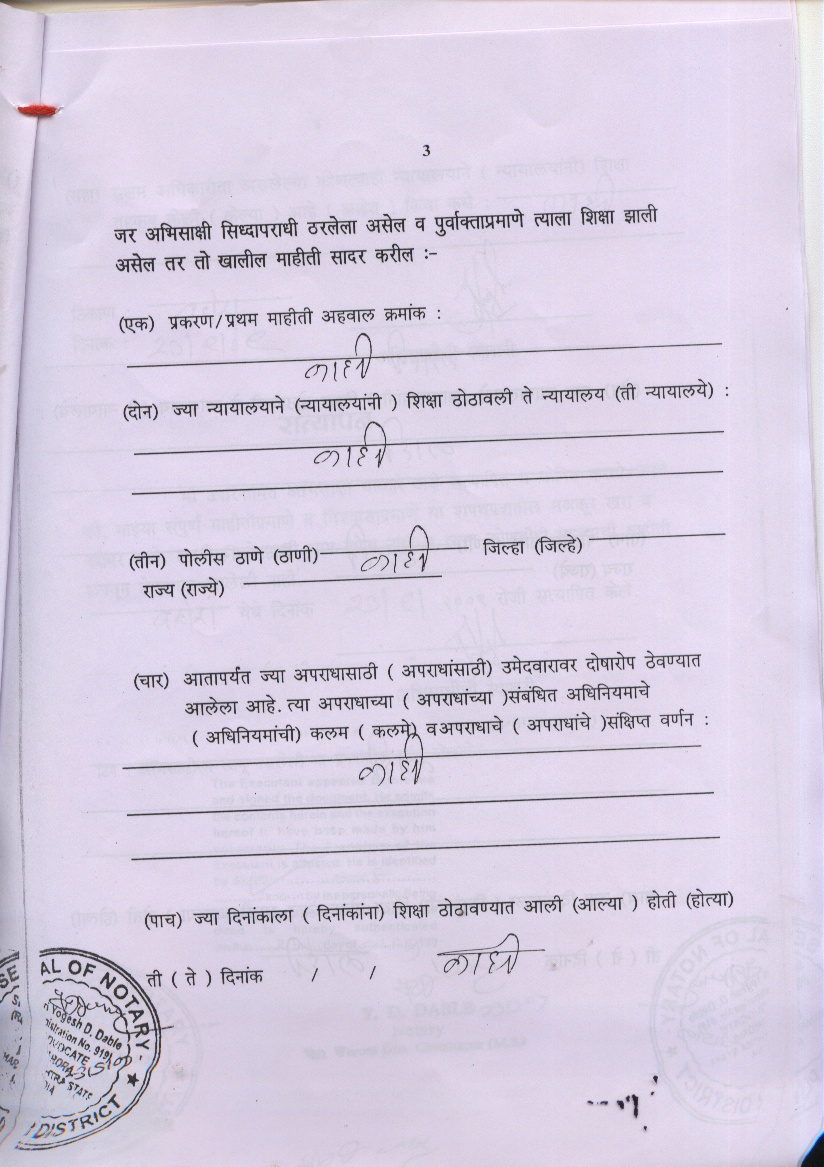 3
जर अभिसाक्षी सिध्दापराधी ठरलेला असेल व पुर्वाक्ताप्रमाणे त्याला शिक्षा झाली
असेल तर तो खालील माहीती सादर करील :-
(एक) प्रकरण/प्रथम माहीती अहवाल क्रमांक :
नाही
(दोन) ज्या न्यायालयाने (न्यायालयांनी ) शिक्षा ठोठावली ते न्यायालय (ती न्यायालये) :
नाही
(तीन) पोलीस ठाणे (ठाणी) नाही जिल्हा (जिल्हे)
राज्य (राज्ये)
(चार) आतापर्यत ज्या अपराधासाठी ( अपराधांसाठी) उमेदवारावर दोषारोप ठेवण्यात
आलेला आहे. त्या अपराधाच्या ( अपराधांच्या )संबंधित अधिनियमाचे
( अधिनियमांची) कलम ( कलमे) वअपराधाचे ( अपराधांचे )संक्षिप्त वर्णन :
नाही
(पाच) ज्या दिनांकाला ( दिनांकांना) शिक्षा ठोठावण्यात आली (आल्या ) होती (होत्या)
ती ( ते ) दिनांक / / नाही
AL OF NOTARY
Yogesh D. Dable
No. 9191
STATE
DISTRICT